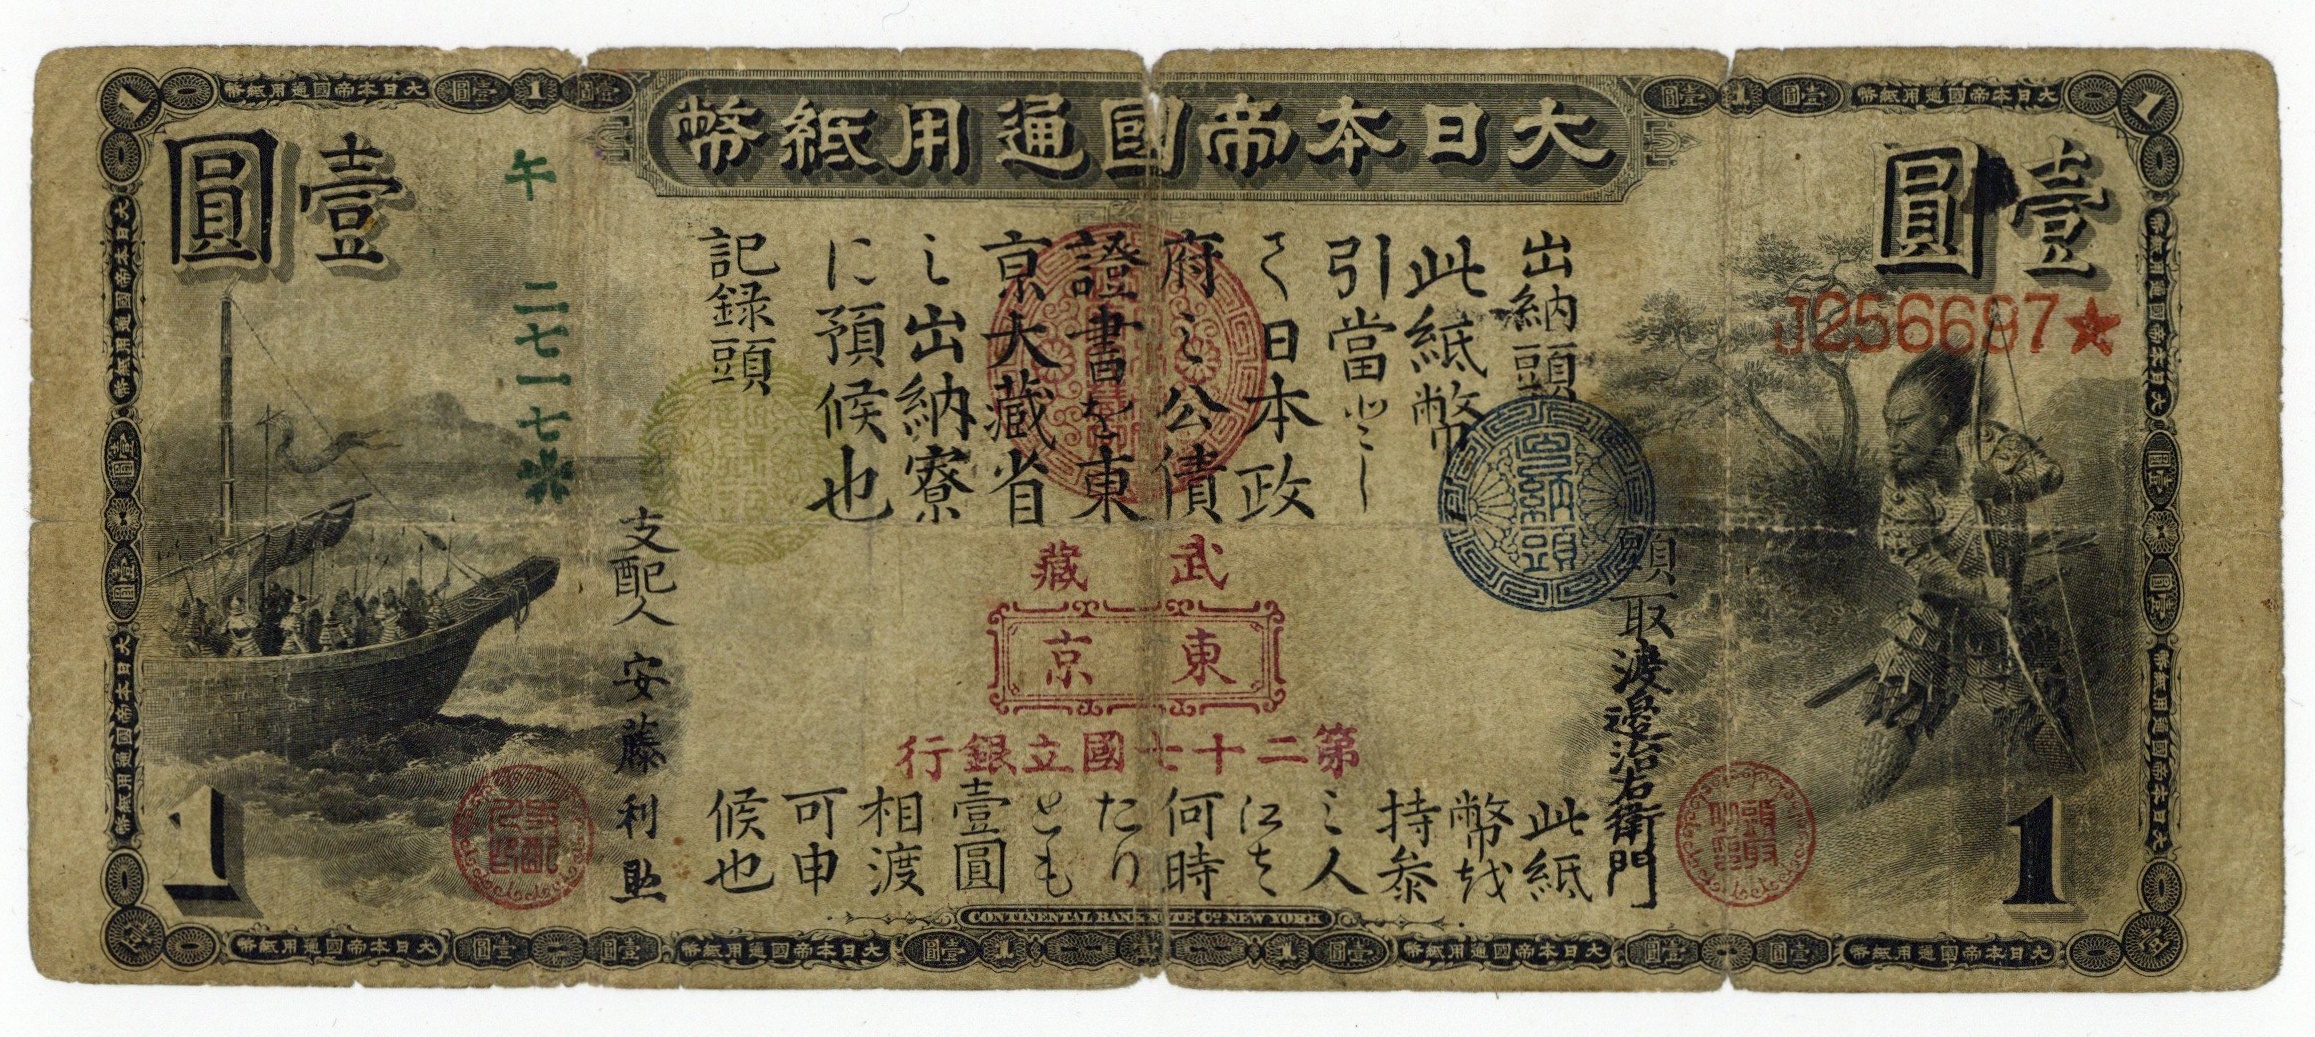 大日本帝國通用紙幣
壹圓
壹圓
J256697★
午 二七一七
出納頭
此紙幣
引當として
日本政
府之公債
證書を東
京大藏省
之出納寮
に預候也
記録頭
武藏
東京
第二十七國立銀行
頭取 渡邉治右衛門
支配人 安藤利助
此紙
幣越
持参
之人
にて
何時
たり
とも
壹圓
相渡
可申
候也
1
1
CONTINENTAL BANK NOTE Co NEW YORK
出納頭
大日本帝國通用紙幣
壹圓
1
壹圓
大日本帝國通用紙幣